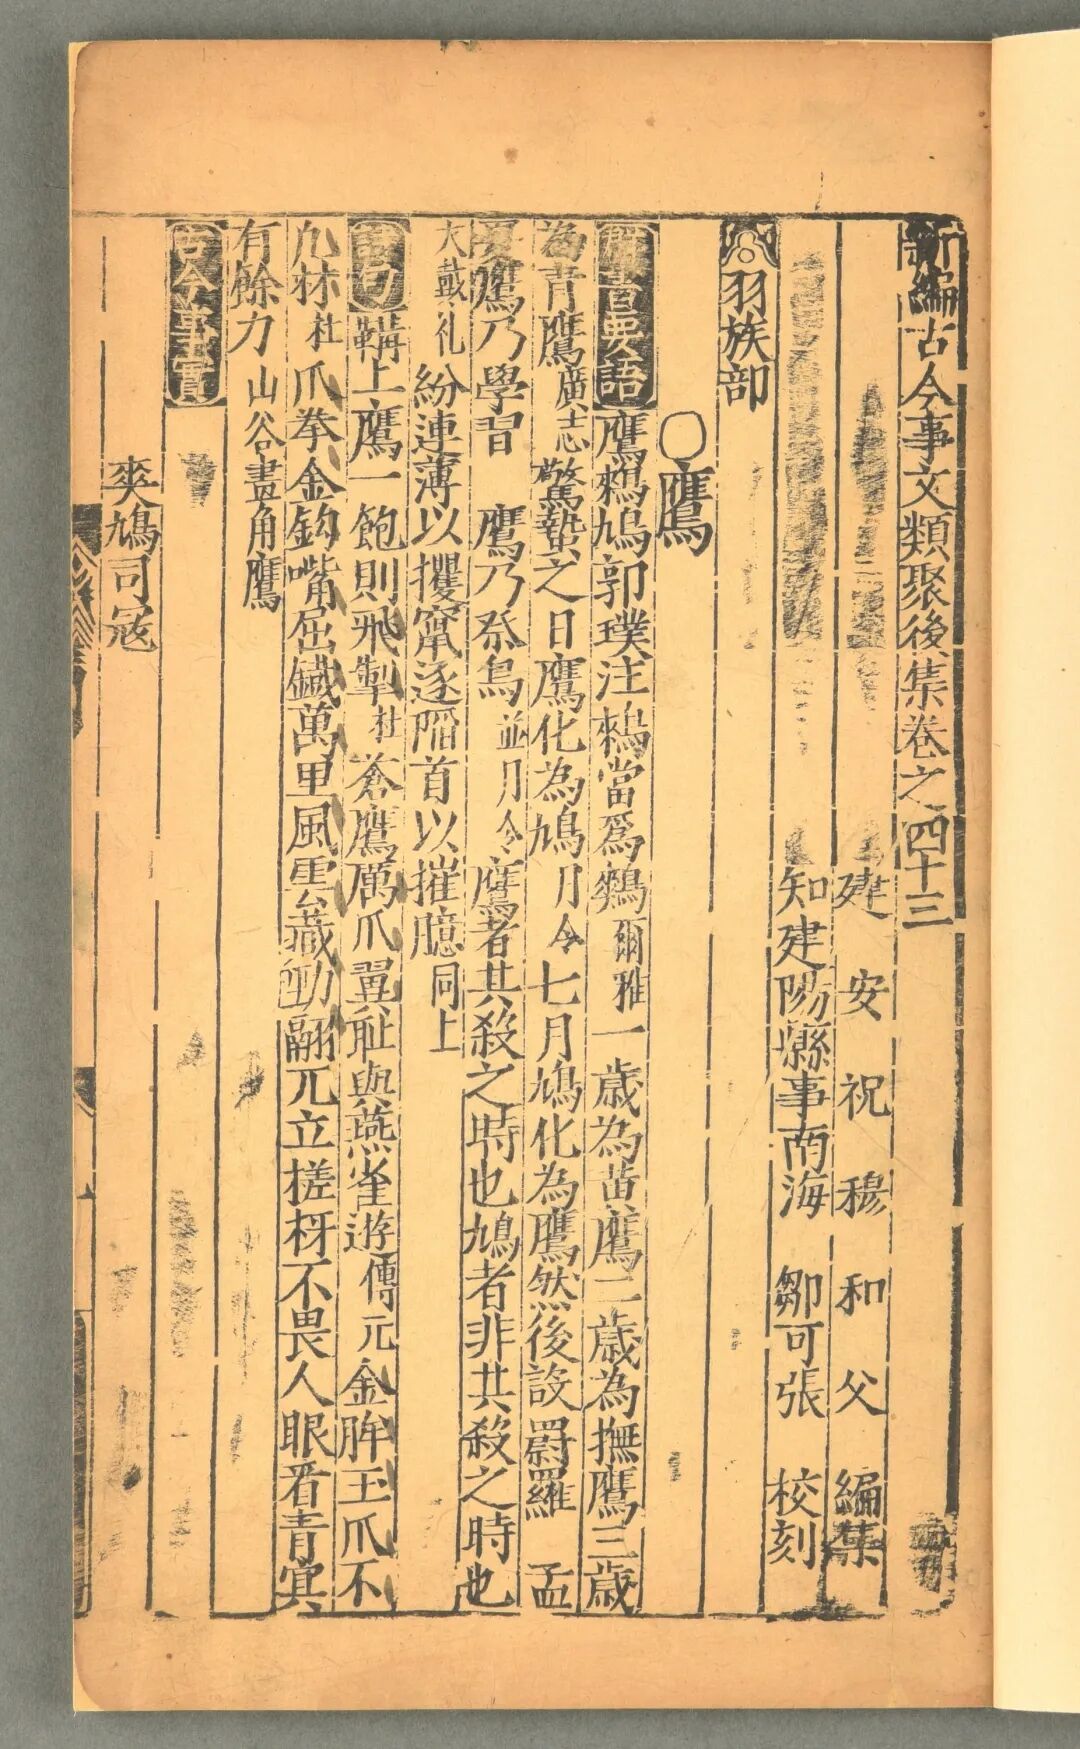 新編古今事文類聚後集卷之四十三
建安祝穆和父編集
知建陽縣事南海鄒可張校刻
羽族部
○鷹
羣書要語鷹鶆鳩郭璞注鶆當爲鷞爾雅一歳為黄鷹二歳為撫鷹三歳
為青鷹廣志驚蟄之日鷹化為鳩月令七月鳩化為鷹然後設罻羅孟
夏鷹乃學習鷹乃祭鳥並月令鷹者其殺之時也鳩者非其殺之時也
大戴礼紛連薄以攫窜逐陷首以摧臆同上
古句鞲上鷹一飽則飛掣杜蒼鷹厲爪翼耻與燕雀遊傅元金眸玉爪不
凡材杜爪拳金鈎嘴屈鐵萬里風雲藏勁翮兀立槎枒不畏人眼看青冥
有餘力山谷畫角鷹
古今事實
爽鳩司寇